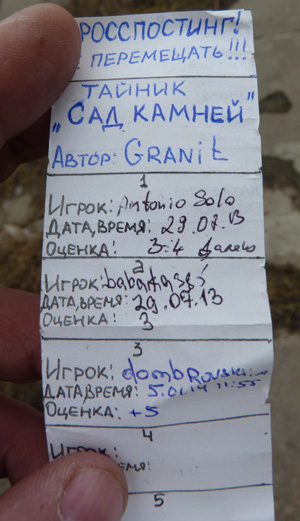 РОССПОСТИНГ!
Е ПЕРЕМЕЩАТЬ!!!
ТАЙНИК
„САД КАМНЕЙ"
АВТОР: GRANIt
1
ИГРОК: Antonio Solo
ДАТА,ВРЕМЯ: 29.07.13
ОЦЕНКА: 3:4 далеко
2
ИГРОК:
ДАТА,ВРЕМЯ: 29.07.13
ОЦЕНКА! 3
3
ИГРОК:
ДАТА,ВРЕМЯ: 5.01.14 11:55
ОЦЕНКА: +5
4
ИГРОК:
ЕМЯ:
5